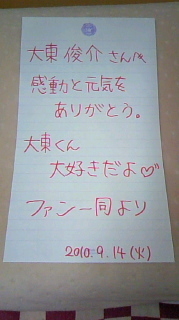 大東 俊介 さんへ
感動と元気を
ありがとう。
大東くん
大好きだよ♡
ファン一同より
2010.9.14(火)